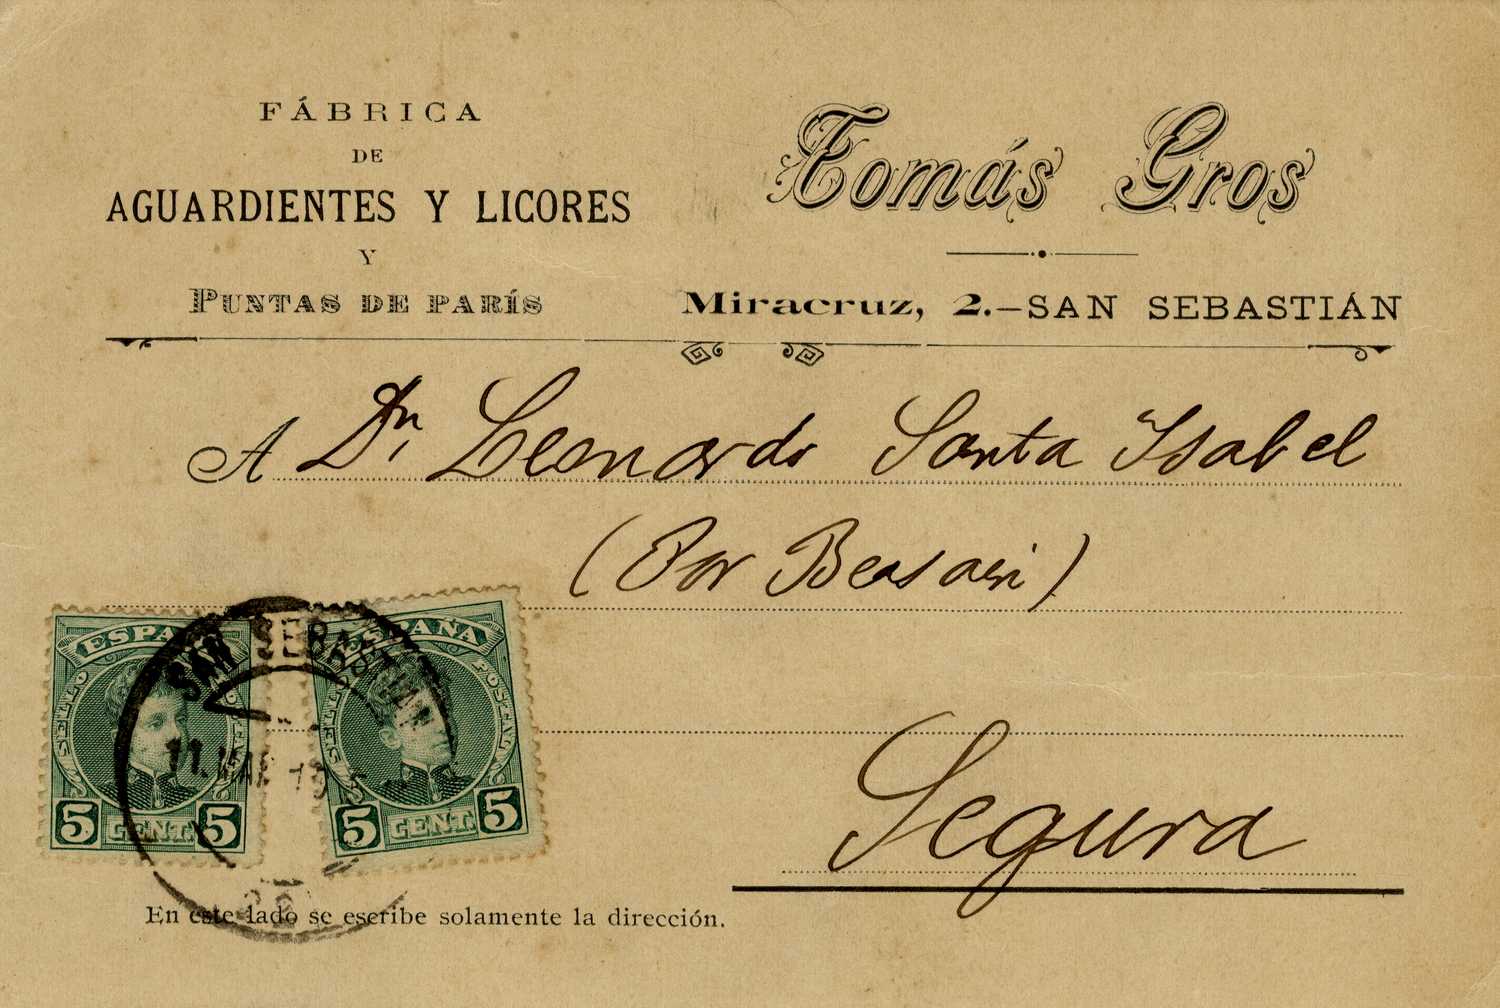 FÁBRICA
DE
AGUARDIENTES Y LICORES
Y
PUNTAS DE PARÍS
Tomás Gros
Miracruz, 2.—SAN SEBASTIÁN
A Dn Leonardo Santa Isabel
(Por Beasain)
Segura
ESPAÑA
SELLO POSTAL
5 CENT. 5
ESPAÑA
POSTAL
5 CENT. 5
SAN SEBASTIAN
11. MAR
En este lado se escribe solamente la dirección.